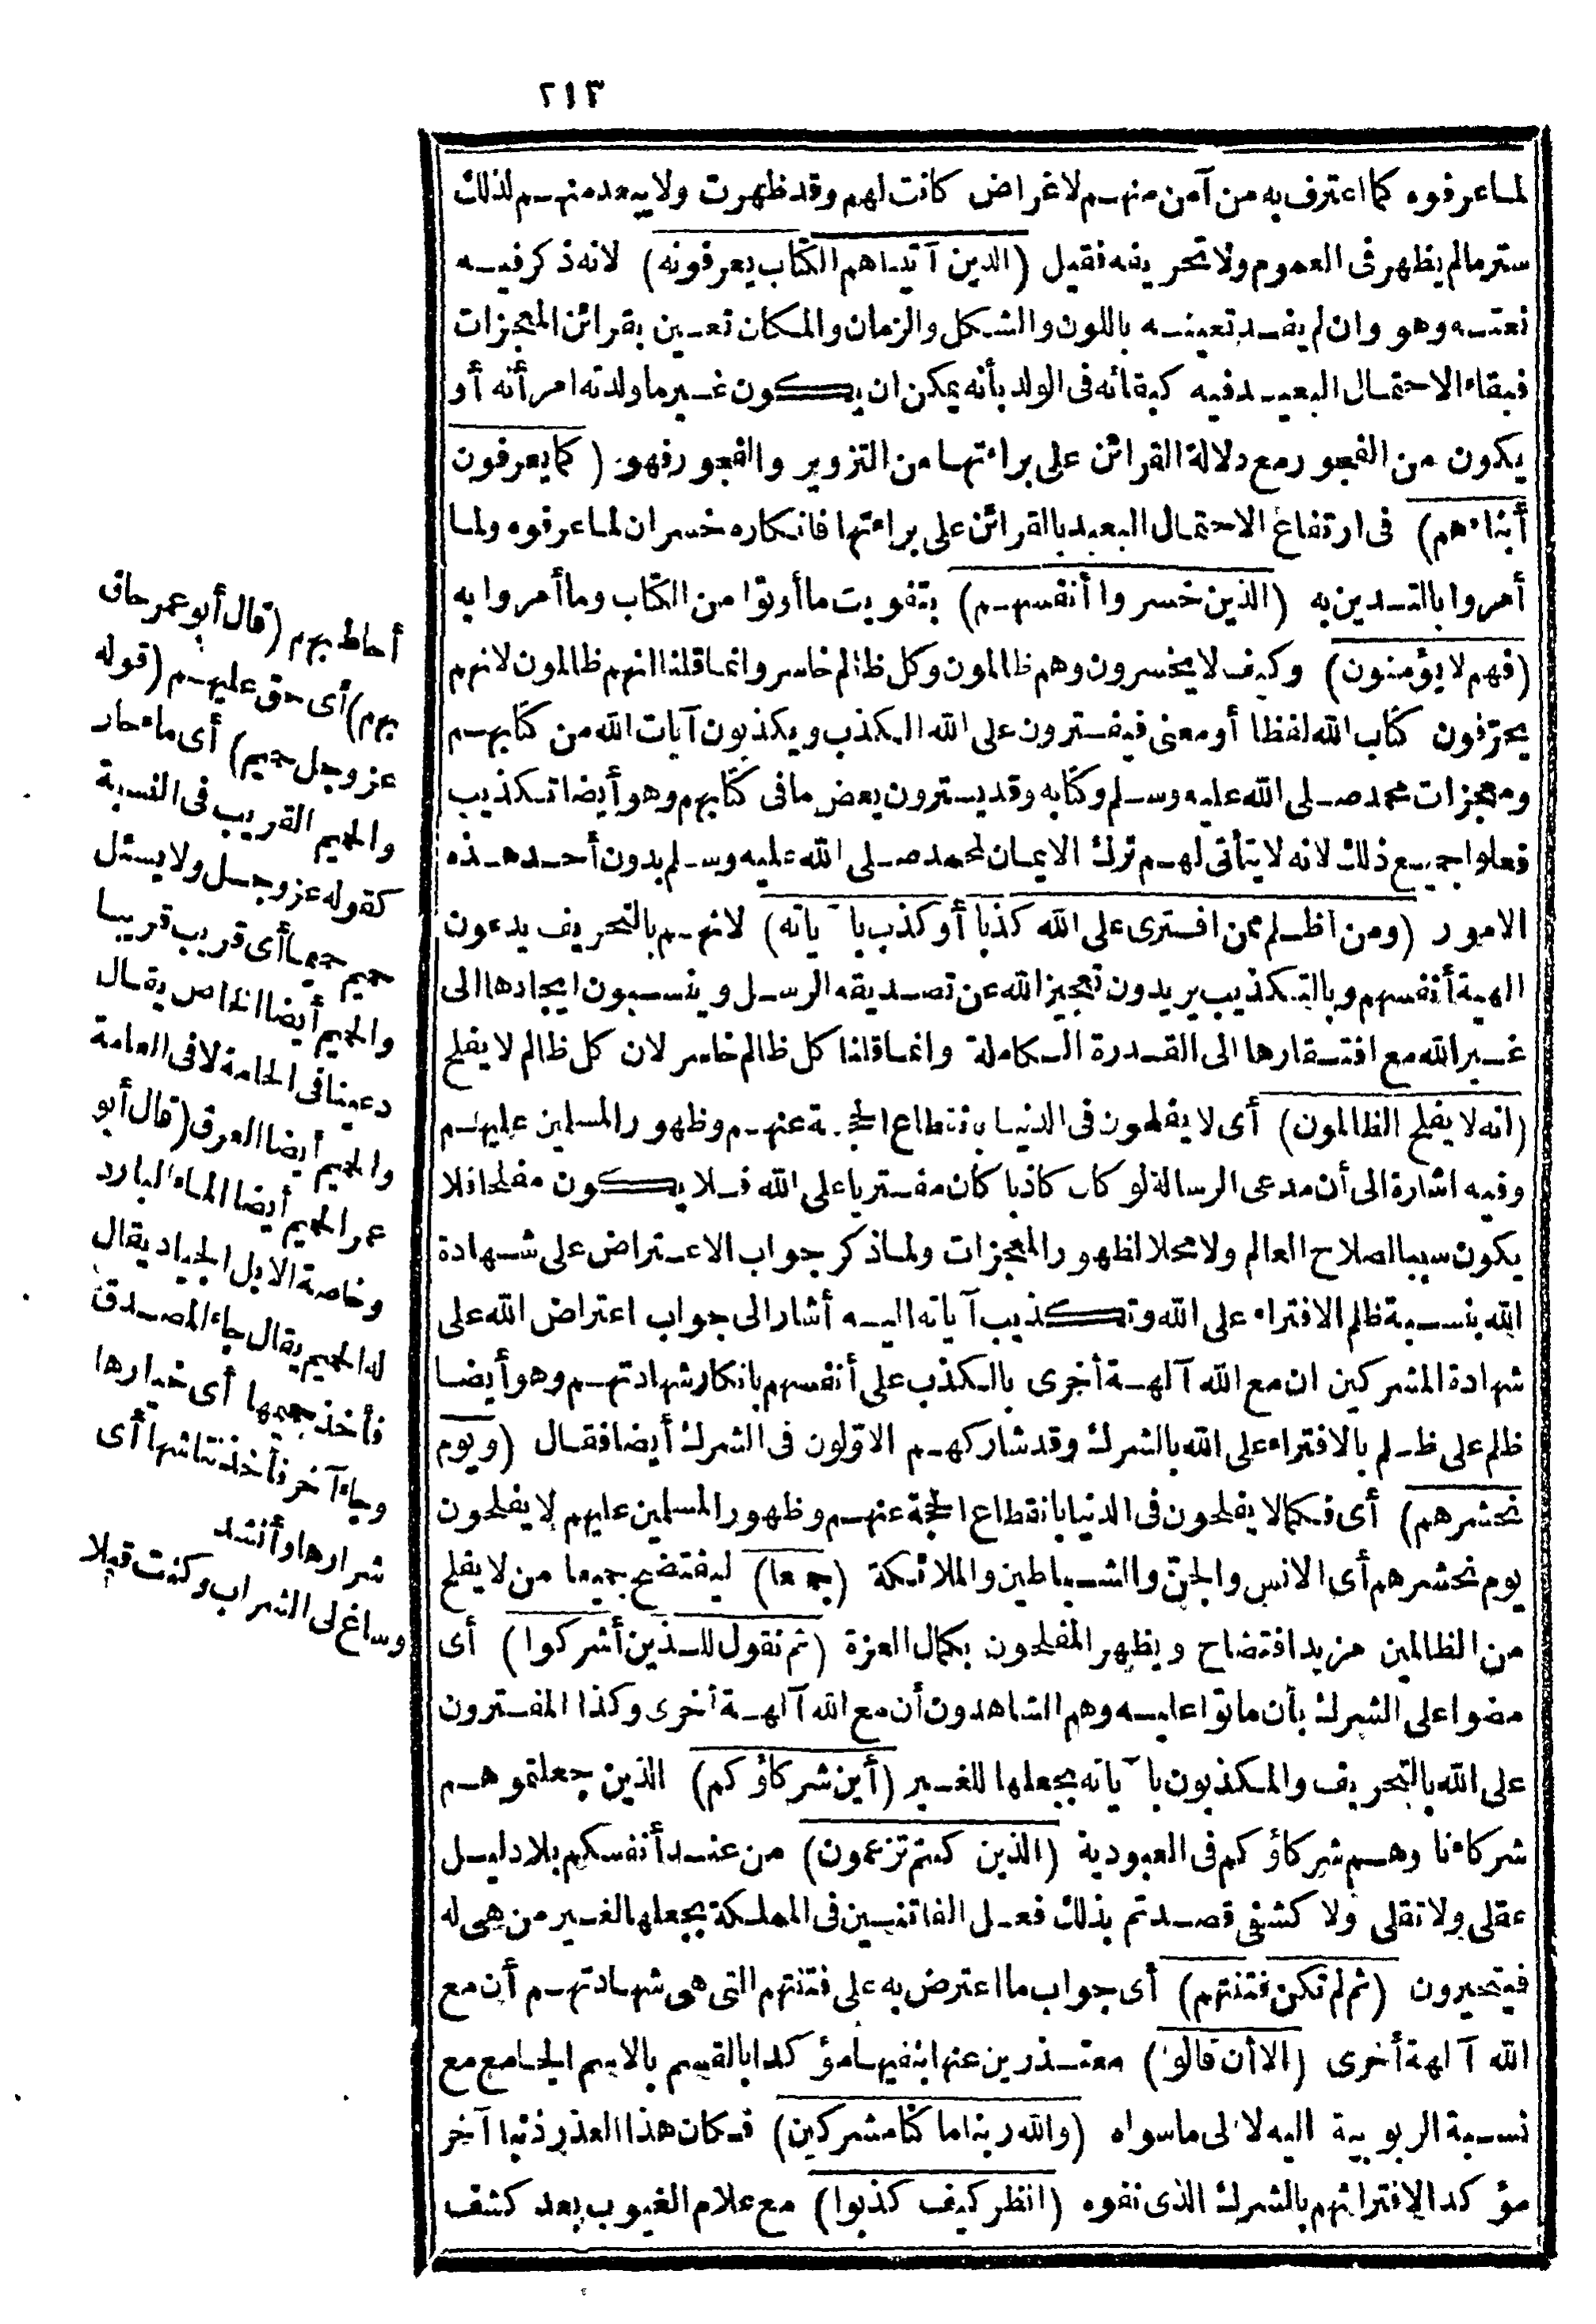 ٢١٣
لما عرفوه كما اعترف به من آمن منهم لاغراض كانت لهم وقد ظهرت ولا يبعد منهم لذلك
ستر ما لم يظهر فى العموم ولا تحريفه فقيل (الذين آتيناهم الكتاب يعرفونه) لانه ذكر فيه
نعته وهو وان لم يفد تعينه باللون والشكل والزمان والمكان تعين بقرائن المعجزات
فبقاء الاحتمال البعيد فيه كبقائه فى الولد بأنه يمكن ان يكون غير ما ولدته امرأته أو
يكون من الفجور مع دلالة القرائن على براءتها من التزوير والفجور فهو (كما يعرفون
أبناءهم) فى ارتفاع الاحتمال البعيد بالقرائن على براءتها فانكاره خسران لما عرفوه ولما
أمروا بالتدين به (الذين خسروا أنفسهم) بتفويت ما أوتوا من الكتاب وما أمروا به
(فهم لا يؤمنون) وكيف لا يخسرون وهم ظالمون وكل ظالم خاسر وانما قلنا انهم ظالمون لانهم
يحرّفون كتاب الله لفظا أو معنى فيفترون على الله الكذب ويكذبون آيات الله من كتابهم
ومعجزات محمد صلى الله عليه وسلم وكتابه وقد يسترون بعض ما فى كتابهم وهو أيضا تكذيب
فعلوا جميع ذلك لانه لا يتأتى لهم ترك الايمان لمحمد صلى الله عليه وسلم بدون أحد هذه
الامور (ومن اظلم ممن افترى على الله كذبا أو كذب بآياته) لانهم بالتحريف يدعون
الهية أنفسهم وبالتكذيب يريدون تعجيز الله عن تصديقه الرسل وينسبون ايجادها الى
غير الله مع افتقارها الى القدرة الكاملة وانما قلنا كل ظالم خاسر لان كل ظالم لا يفلح
(انه لا يفلح الظالمون) أى لا يفلحون فى الدنيا بانقطاع الحجة عنهم وظهور المسلمين عليهم
وفيه اشارة الى أن مدعى الرسالة لو كان كاذبا كان مفتريا على الله فلا يكون مفلحا فلا
يكون سببا لصلاح العالم ولا محلا لظهور المعجزات ولما ذكر جواب الاعتراض على شهادة
الله بنسبة ظلم الافتراء على الله وتكذيب آياته اليه أشار الى جواب اعتراض الله على
شهادة المشركين ان مع الله آلهة أخرى بالكذب على أنفسهم بانكار شهادتهم وهو أيضا
ظلم على ظلم بالافتراء على الله بالشرك وقد شاركهم الاوّلون فى الشرك أيضا فقال (ويوم
نحشرهم) أى فكما لا يفلحون فى الدنيا بانقطاع الحجة عنهم وظهور المسلمين عليهم لا يفلحون
يوم نحشرهم أى الانس والجنّ والشياطين والملائكة (جمعا) ليفتضح جميعا من لا يفلح
من الظالمين مزيد افتضاح ويظهر المفلحون بكمال العزة (ثم نقول للذين أشركوا) أى
مضوا على الشرك بأن ماتوا عليه وهم الشاهدون أن مع الله آلهة أخرى وكذا المفترون
على الله بالتحريف والمكذبون بآياته بجعلها للغير (أين شركاؤكم) الذين جعلتموهم
شركاءنا وهم شركاؤكم فى العبودية (الذين كنتم تزعمون) من عند أنفسكم بلا دليل
عقلى ولا نقلى ولا كشفى قصدتم بذلك فعل الفاتنين فى المملكة بجعلها لغير من هى له
فيتحيرون (ثم لم تكن فتنتهم) أى جواب ما اعترض به على فتنتهم التى هى شهادتهم أن مع
الله آلهة أخرى (الا أن قالوا) معتذرين عنها بنفيها مؤكدا بالقسم بالاسم الجامع مع
نسبة الربوبية اليه لا الى ما سواه (والله ربنا ما كنا مشركين) فكان هذا العذر ذنبا آخر
مؤكدا لافترائهم بالشرك الذى نفوه (انظر كيف كذبوا) مع علام الغيوب بعد كشف
أحاط بهم (قال أبو عمر حاق
بهم) أى حق عليهم (قوله
عز وجل حميم) أى ماء حار
والحميم القريب فى النسبة
كقوله عز وجل ولا يسئل
حميم حميما أى قريب قريبا
والحميم أيضا الخاص يقال
دعينا فى الحامة لا فى العامة
والحميم أيضا العرق (قال أبو
عمر الحميم أيضا الماء البارد
وخاصة الابل الجياد يقال
له الحميم يقال جاء المصدق
فأخذ حميمها أى خيارها
وجاء آخر فأخذ نتاشها أى
شرارها وأنشد
وساغ لى الشراب وكنت قبلا